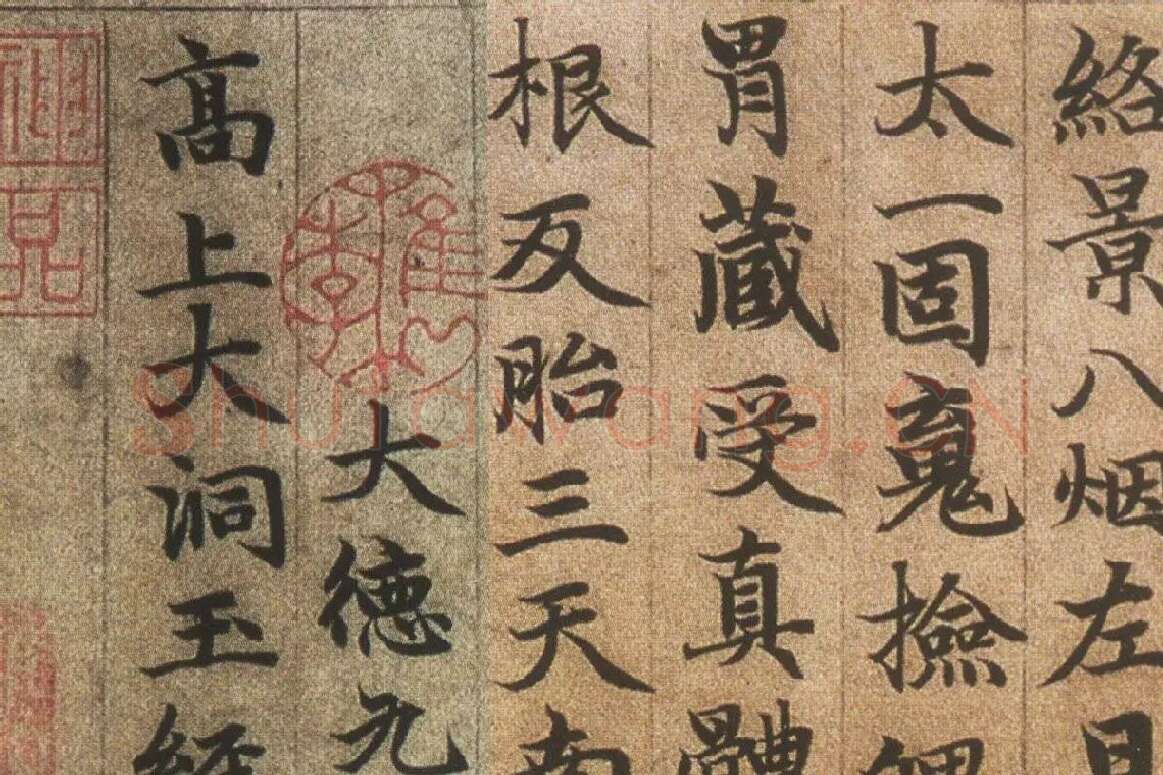 絡景八烟左
太一固䰟撿
胃藏受真體
根反胎三天南
大德九
高上大洞玉經
神品
shufawang.CN